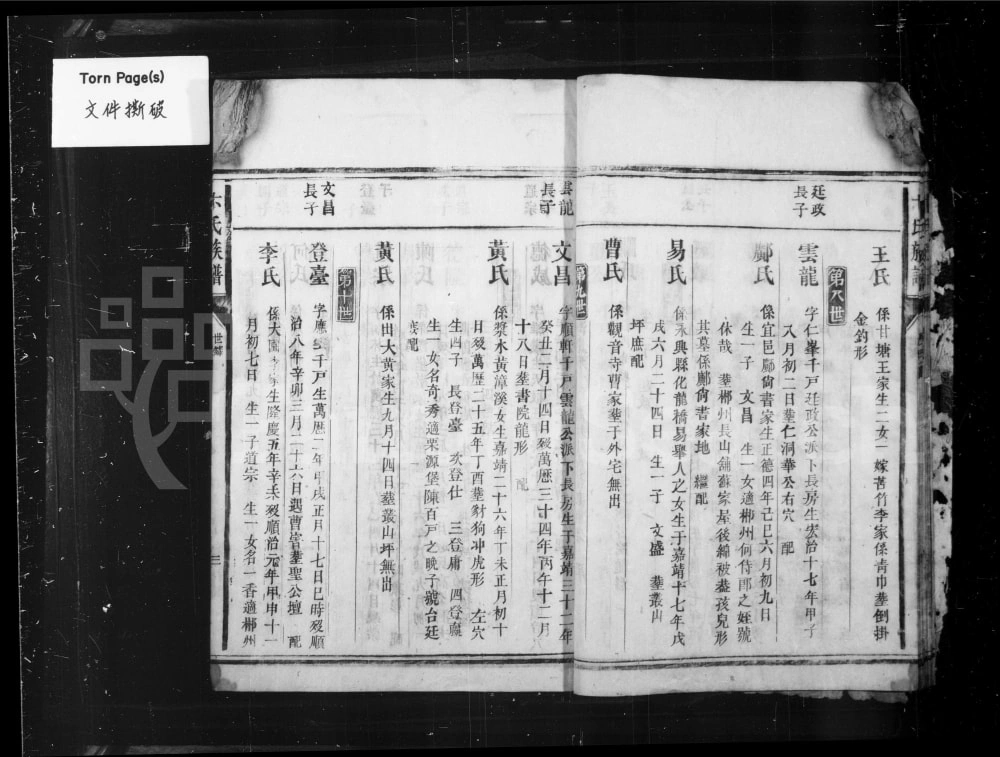 Torn Page(s)
文件撕破
王氏 係甘塘王家生二女一嫁苦竹李家係青巾塟倒掛
金鈎形
第八世
廷政長子
雲龍 字仁峯千戸廷政公派下長房生宏治十七年甲子
八月初二日塟仁洞華公右穴 配
鄺氏 係宜邑鄺尙書家生正德四年己巳六月初九日
生一子 文昌 生一女適郴州何侍郎之姪號
休哉 塟郴州長山舖蘇家屋後綿被葢孩兒形
其墓係鄺尙書家地 繼配
易氏 係永興縣化龍橋易舉人之女生于嘉靖十七年戌
戌六月二十四日 生一子 文盛 塟叢山
坪庶配
曹氏 係觀音寺曹家塟于外宅無出
第九世
雲龍長子
文昌 字順軒千戸雲龍公派下長房生于嘉靖三十二年
癸丑二月十四日歿萬歷三十四年丙午十二月
十八日塟書院龍形 配
黃氏 係漿水黃漳溪女生嘉靖二十六年丁未正月初十
日歿萬歷二十五年丁酉塟豺狗冲虎形 左穴
生四子 長登臺 次登仕 三登庸 四登瀛
生一女名奇秀適栗源堡陳百戸之晩子號台廷
黃氏 係出大黃家生九月十四日塟叢山坪無出
第十世
文昌長子
登臺 字應 千戸生萬歷二年甲戌正月十七日巳時歿順
治八年辛卯三月二十六日遇曹官塟聖公壇 配
李氏 係大園 家生隆慶五年辛未歿順治元年甲申十一
月初七日 生一子道宗 生一女名一香適郴州
氏族譜
世籍
三